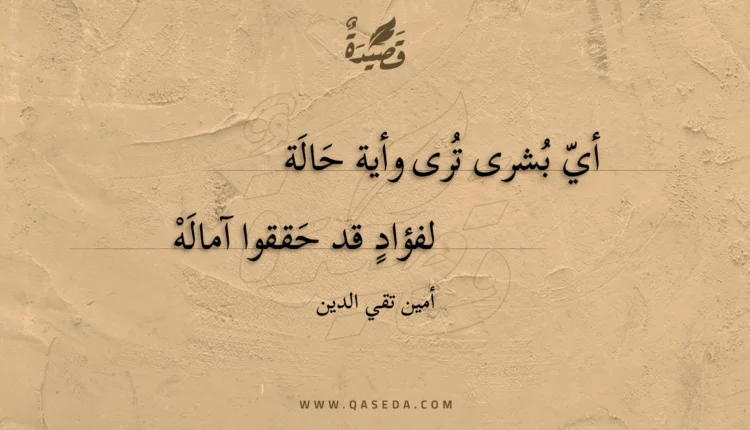 قَصِيْدَةٌ
أيّ بُشرى تُرى وأية حَالَة
لفؤادٍ قد حَققوا آمالَهْ
أمين تقي الدين
WWW.QASEDA.COM